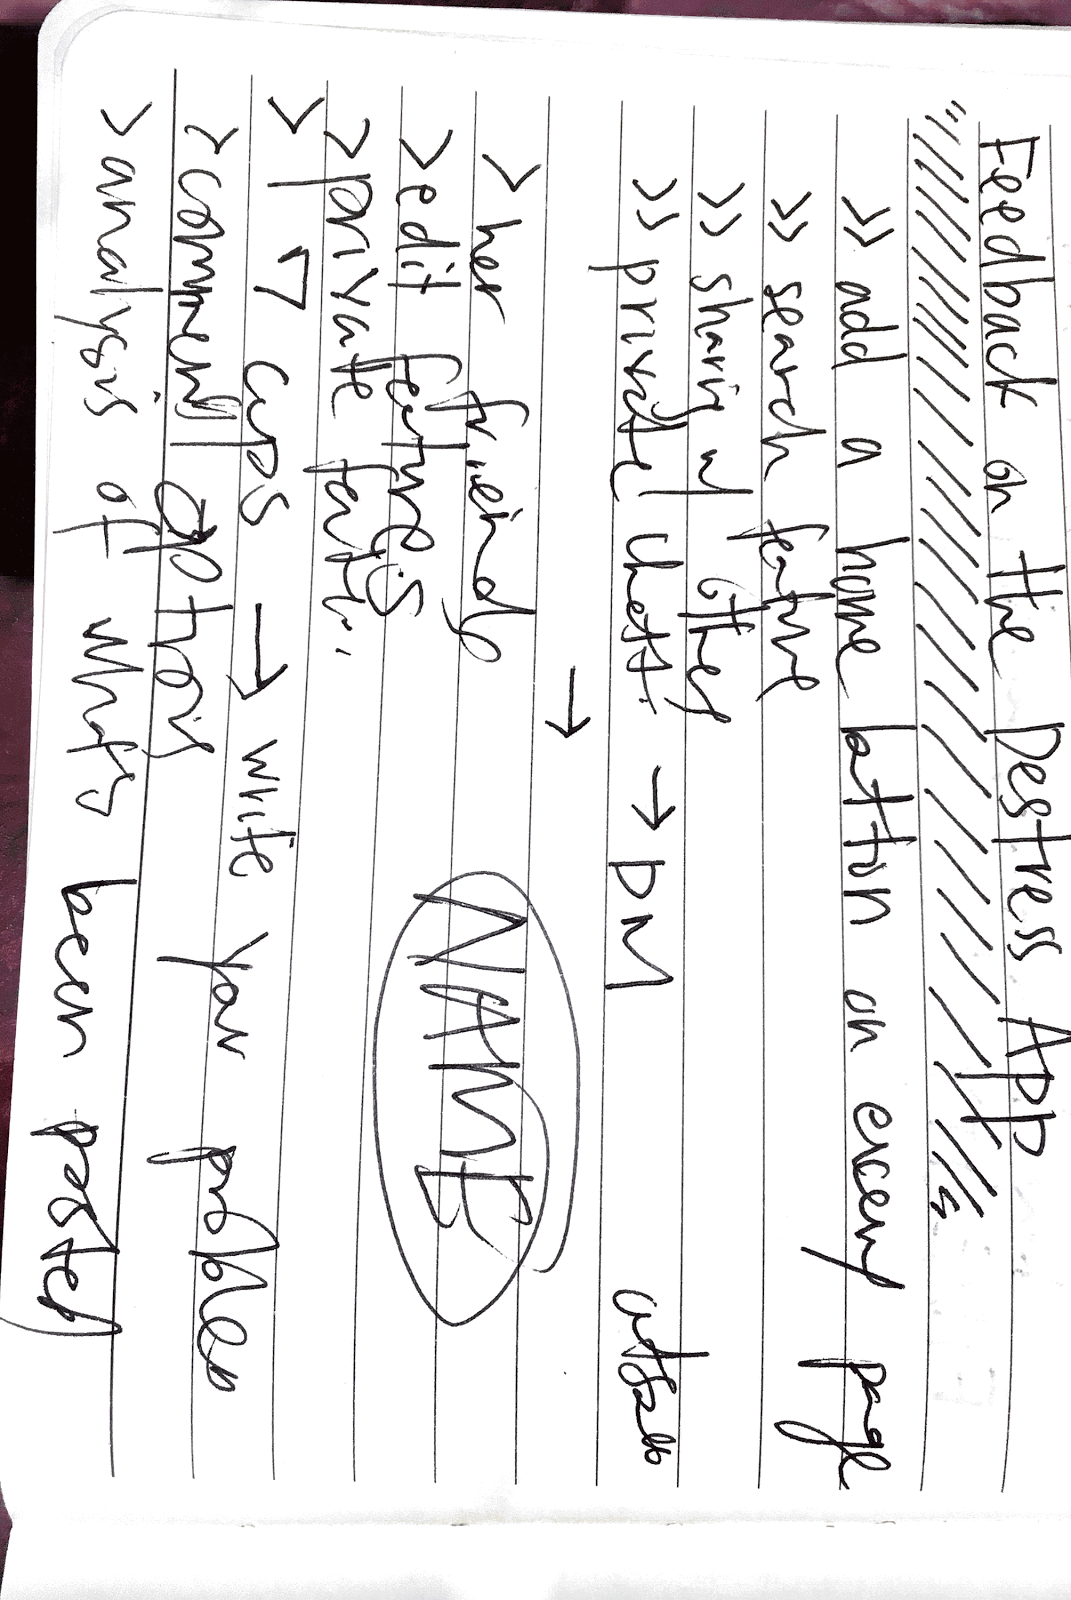 Feedback on the Destress App
>> add a home button on every page
>> search feature
>> sharing w/ others
>> private chats. → DM
→
> her friends
> edit features
NAMB
> private
> 7 cups → write your problem
> comment options
> analysis of what's been posted